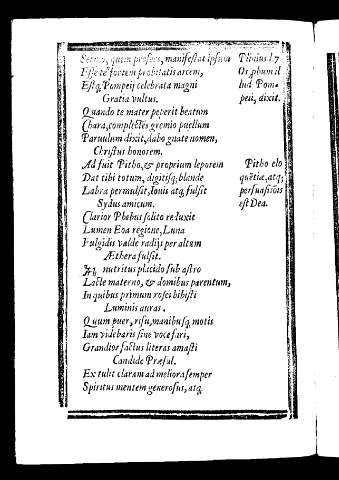 Sermo, quem profers, manifestat ipsum
Esse te fortem probitatis arcem,
Estq; Pompeij celebrata magni
Gratia vultus.
Quando te mater peperit beatum
Chara, complectēs gremio puellum
Parvulum dixit, dabo gnate nomen,
Christus honorem.
Ad fuit Pitho, & proprium leporem
Dat tibi totum, digitisq; blande
Labra permulsit, Iouis atq; fulsit
Sydus amicum.
Clarior Phœbus solito reluxit
Lumen Eoa regione, Luna
Fulgidis valde radijs per altam
Æthera fulsit.
nutritus placido sub astro
Lacte materno, & domibus parentum,
In quibus primum rosei bibisti
Luminis auras.
Quum puer, risu, manibusq; motis
Iam videbaris sine voce fari,
Grandior factus literas amasti
Candide Præsul.
Extulit claram ad meliora semper
Spiritus mentem generosus, atq;
Plinius l. 7
Os probum il
lud Pom-
peij, dixit.
Pitho elo
quētiæ, atq;
persuasionis
est Dea.